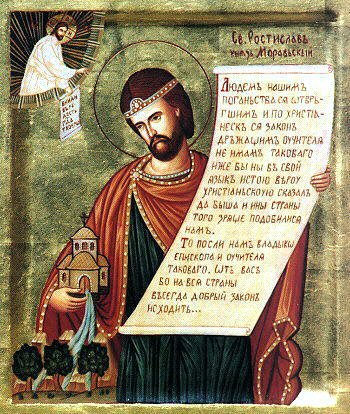 Св. Ростислав
князь Моравьскїй
Людємъ нашимъ
поганьства сѧ отврь-
гшимъ и по христїѧ-
нескъ сѧ законъ
дрьжащимъ оучитєлѧ
нє имамъ таковаго
ижє бы ны въ свой
языкъ истою вѣроу
христїаньскую сказалъ
да быша и ины страны
того зрѧщє подобилисѧ
намъ.
То посли намъ владыкы
єпископа и оучитєлѧ
таковаго. Ѡтъ васъ
бо на всѧ страны
вьсєгда добрый законъ
исходить...